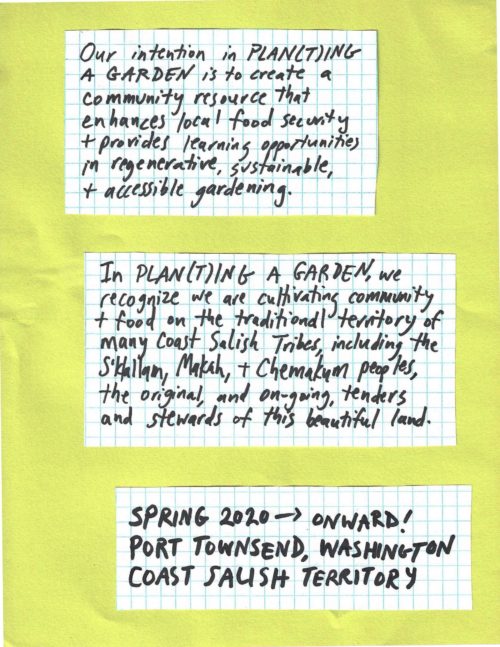 Our intention in PLAN(T)ING
A GARDEN is to create a
community resource that
enhances local food security
+ provides learning opportunities
in regenerative, sustainable,
+ accessible gardening.
In PLAN(T)ING A GARDEN, we
recognize we are cultivating community
+ food on the traditional territory of
many Coast Salish Tribes, including the
S'Klallam, Makah, + Chemakum peoples,
the original, and on-going, tenders
and stewards of this beautiful land.
SPRING 2020 → ONWARD!
PORT TOWNSEND, WASHINGTON
COAST SALISH TERRITORY